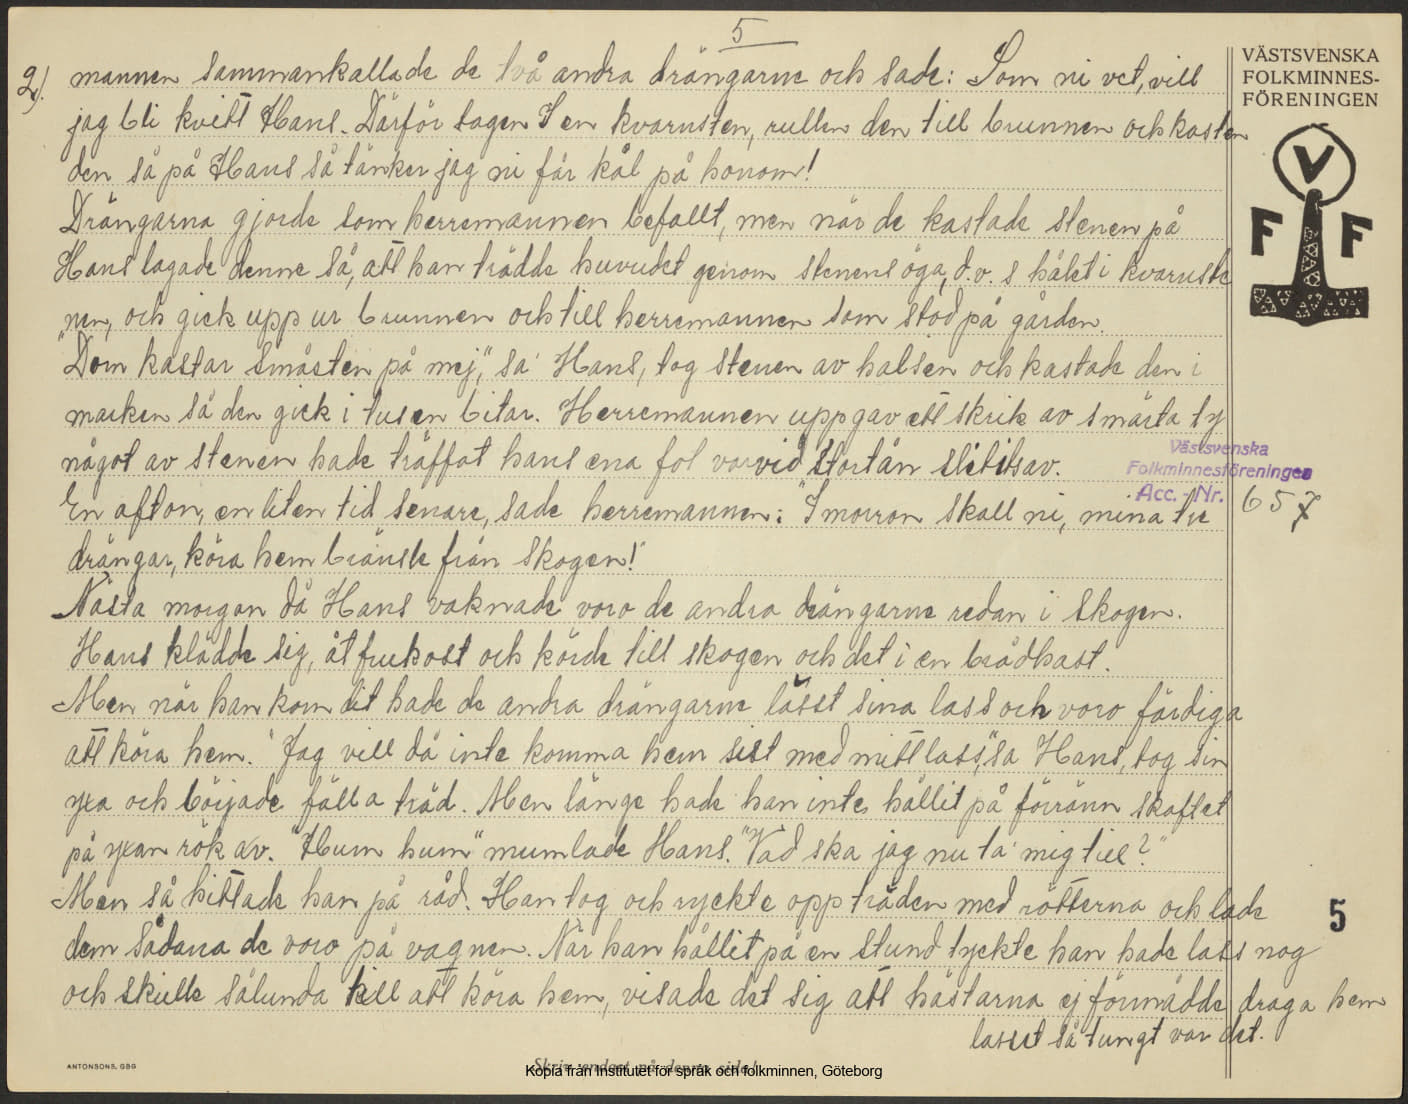 5
VÄSTSVENSKA
FOLKMINNES-
FÖRENINGEN
2). mannen sammankallade de två andra drängarne och sade: Som ni vet, vill
jag bli kvitt Hans. Därför tagen I en kvarnsten, rullen den till brunnen och kasten
den så på Hans så tänker jag ni får kål på honom!
Drängarna gjorde som herremannen befallt, men när de kastade stenen på
Hans lagade denne så, att han trädde huvudet genom stenens öga, d.v.s hålet i kvarnste
nen, och gick upp ur brunnen och till herremannen som stod på gården.
"Dom kastar småsten på mej", sa' Hans, tog stenen av halsen och kastade den i
marken så den gick i tusen bitar. Herremannen uppgav ett skrik av smärta ty
något av stenen hade träffat hans ena fot varvid stortån slitits av.
En afton, en liten tid senare, sade herremannen: "I morron skall ni, mina tre
drängar, köra hem bränsle från skogen!"
Nästa morgon då Hans vaknade voro de andra drängarne redan i skogen.
Hans klädde sig, åt frukost och körde till skogen och det i en brådkast.
Men när han kom dit hade de andra drängarne lässt sina lass och voro färdiga
att köra hem. "Jag vill då inte komma hem sist med mitt lass", sa Hans, tog sin
yxa och började fälla träd. Men länge hade han inte hållit på förränn skaftet
på yxan rök av. "Hum hum" mumlade Hans. "Vad ska jag nu ta' mig till?"
Men så hittade han på råd. Han tog och ryckte opp träden med rötterna och lade
dem sådana de voro på vagnen. När han hållit på en stund tyckte han hade lass nog
och skulle sålunda till att köra hem, visade det sig att hästarna ej förmådde draga hem
lasset så tungt var det.
V
F F
Västsvenska
Folkminnesföreningen
Acc. - Nr. 657
5
ANTONSONS, GBG
Skriv endast på denna sida!
Kopia från Institutet för språk och folkminnen, Göteborg